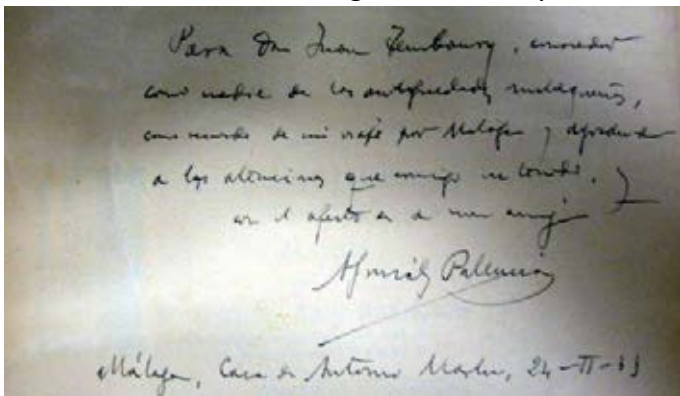 Para Don Juan Temboury, conocedor
como nadie de las antigüedades malagueñas,
como recuerdo de mi viaje por Málaga y
a las atenciones que conmigo ha tenido,
con el afecto de su buen amigo
A González Palencia
Málaga, Casa de Antonio Martín, 24-II-43